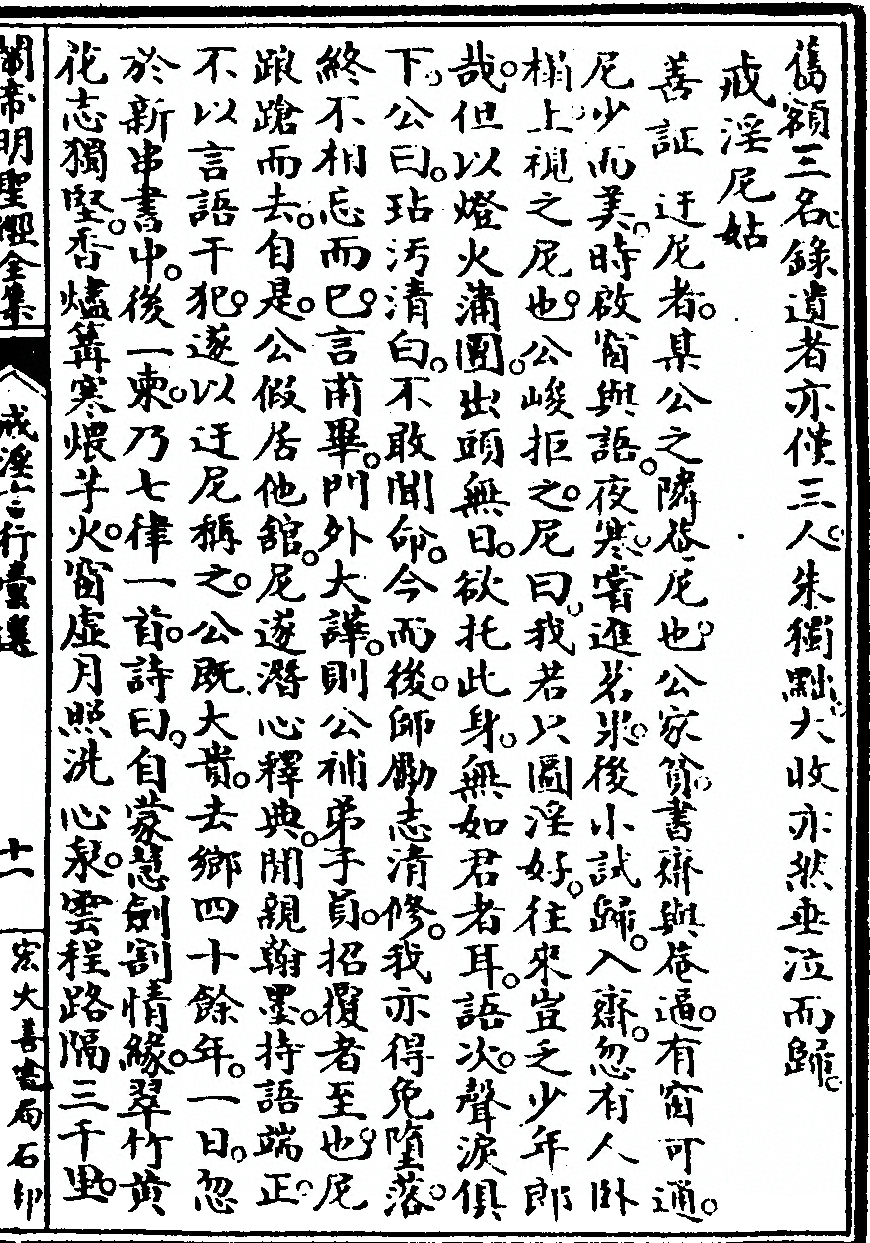 舊額三名。錄遺者亦僅三人。朱獨黜。大收亦然。垂泣而歸。
戒淫尼姑
善証　迂尼者。某公之隣菴尼也。公家貧。書齋與菴逼。有窗可通。
尼少而美。時啟窗與語。夜寒。嘗進茗菓。後小試歸。入齋。忽有人臥
榻上。視之尼也。公峻拒之。尼曰。我若只圖淫好。往來豈乏少年郎
哉。但以燈火蒲團。出頭無日。欲托此身。無如君者耳。語次。聲淚俱
下。公曰。玷污清白。不敢聞命。今而後。師勵志清修。我亦得免墮落。
終不相忘而已。言甫畢。門外大譁。則公補弟子員。招覆者至也。尼
踉蹌而去。自是。公假居他舘。尼遂潛心釋典。閒親翰墨。持語端正。
不以言語干犯。遂以迂尼稱之。公既大貴。去鄉四十餘年。一日。忽
於新串書中。後一柬。乃七律一首。詩曰。自蒙慧劍割情緣。翠竹黃
花志獨堅。香燼篝寒煨芋火。窗虛月照洗心泉。雲程路隔三千里。
關帝明聖經全集
戒淫言行彙選
十一
宏大善書局石印